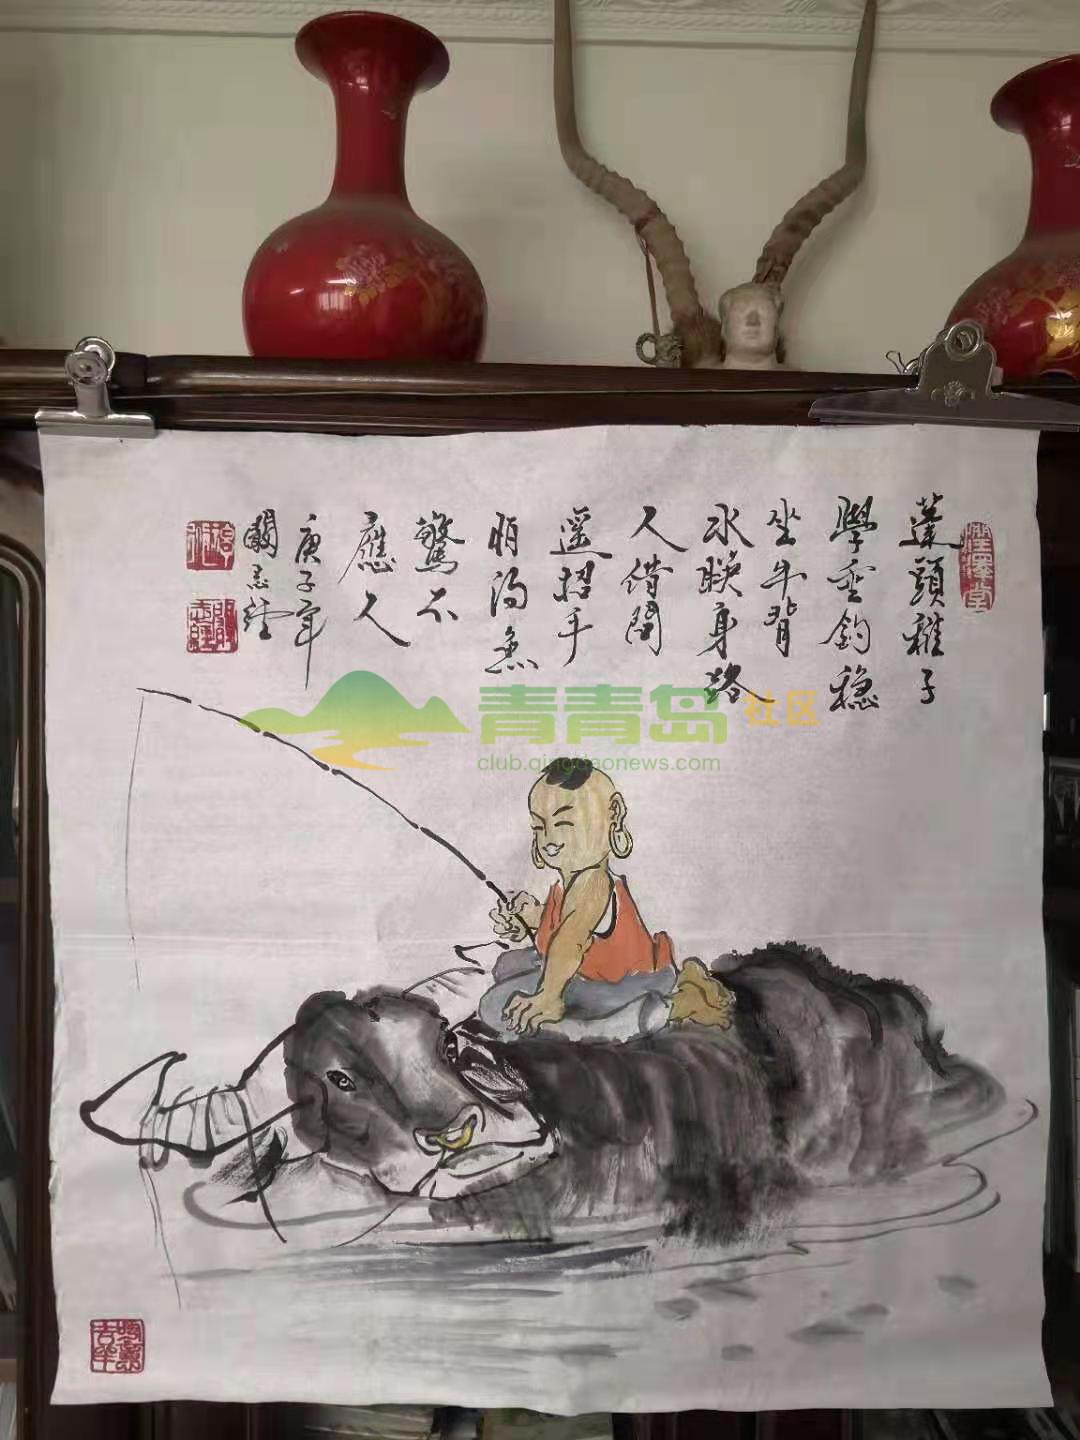 蓬頭稚子
學垂釣穩
坐牛背
水映身路
人借問
遥招手
怕得魚
驚不
應人
庚子年
青青岛社区
club.qingdaonews.com